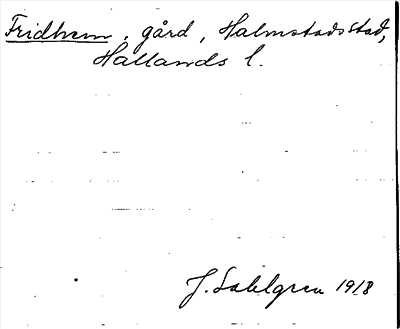 Fridhem, gård, Halmstads stad,
Hallands l.
J. Sahlgren 1918